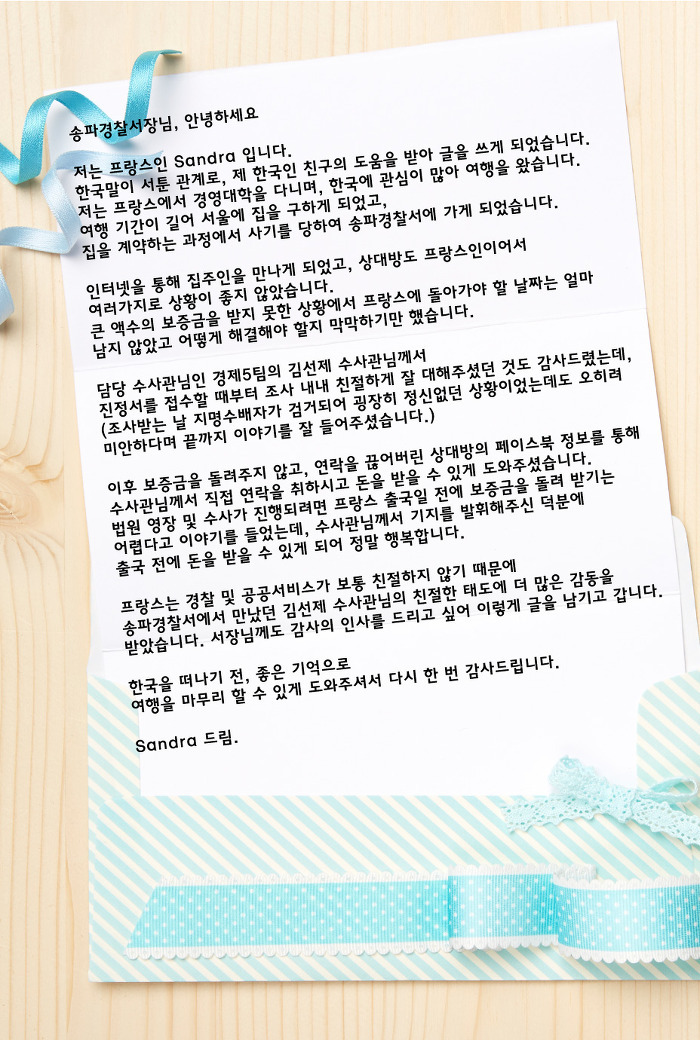 송파경찰서장님, 안녕하세요
저는 프랑스인 Sandra 입니다.
한국말이 서툰 관계로, 제 한국인 친구의 도움을 받아 글을 쓰게 되었습니다.
저는 프랑스에서 경영대학을 다니며, 한국에 관심이 많아 여행을 왔습니다.
여행 기간이 길어 서울에 집을 구하게 되었고,
집을 계약하는 과정에서 사기를 당하여 송파경찰서에 가게 되었습니다.
인터넷을 통해 집주인을 만나게 되었고, 상대방도 프랑스인이어서
여러가지로 상황이 좋지 않았습니다.
큰 액수의 보증금을 받지 못한 상황에서 프랑스에 돌아가야 할 날짜는 얼마
남지 않았고 어떻게 해결해야 할지 막막하기만 했습니다.
담당 수사관님인 경제5팀의 김선제 수사관님께서
진정서를 접수할 때부터 조사 내내 친절하게 잘 대해주셨던 것도 감사드렸는데,
(조사받는 날 지명수배자가 검거되어 굉장히 정신없던 상황이었는데도 오히려
미안하다며 끝까지 이야기를 잘 들어주셨습니다.)
이후 보증금을 돌려주지 않고, 연락을 끊어버린 상대방의 페이스북 정보를 통해
수사관님께서 직접 연락을 취하시고 돈을 받을 수 있게 도와주셨습니다.
법원 영장 및 수사가 진행되려면 프랑스 출국일 전에 보증금을 돌려 받기는
어렵다고 이야기를 들었는데, 수사관님께서 기지를 발휘해주신 덕분에
출국 전에 돈을 받을 수 있게 되어 정말 행복합니다.
프랑스는 경찰 및 공공서비스가 보통 친절하지 않기 때문에
송파경찰서에서 만났던 김선제 수사관님의 친절한 태도에 더 많은 감동을
받았습니다. 서장님께도 감사의 인사를 드리고 싶어 이렇게 글을 남기고 갑니다.
한국을 떠나기 전, 좋은 기억으로
여행을 마무리 할 수 있게 도와주셔서 다시 한 번 감사드립니다.
Sandra 드림.